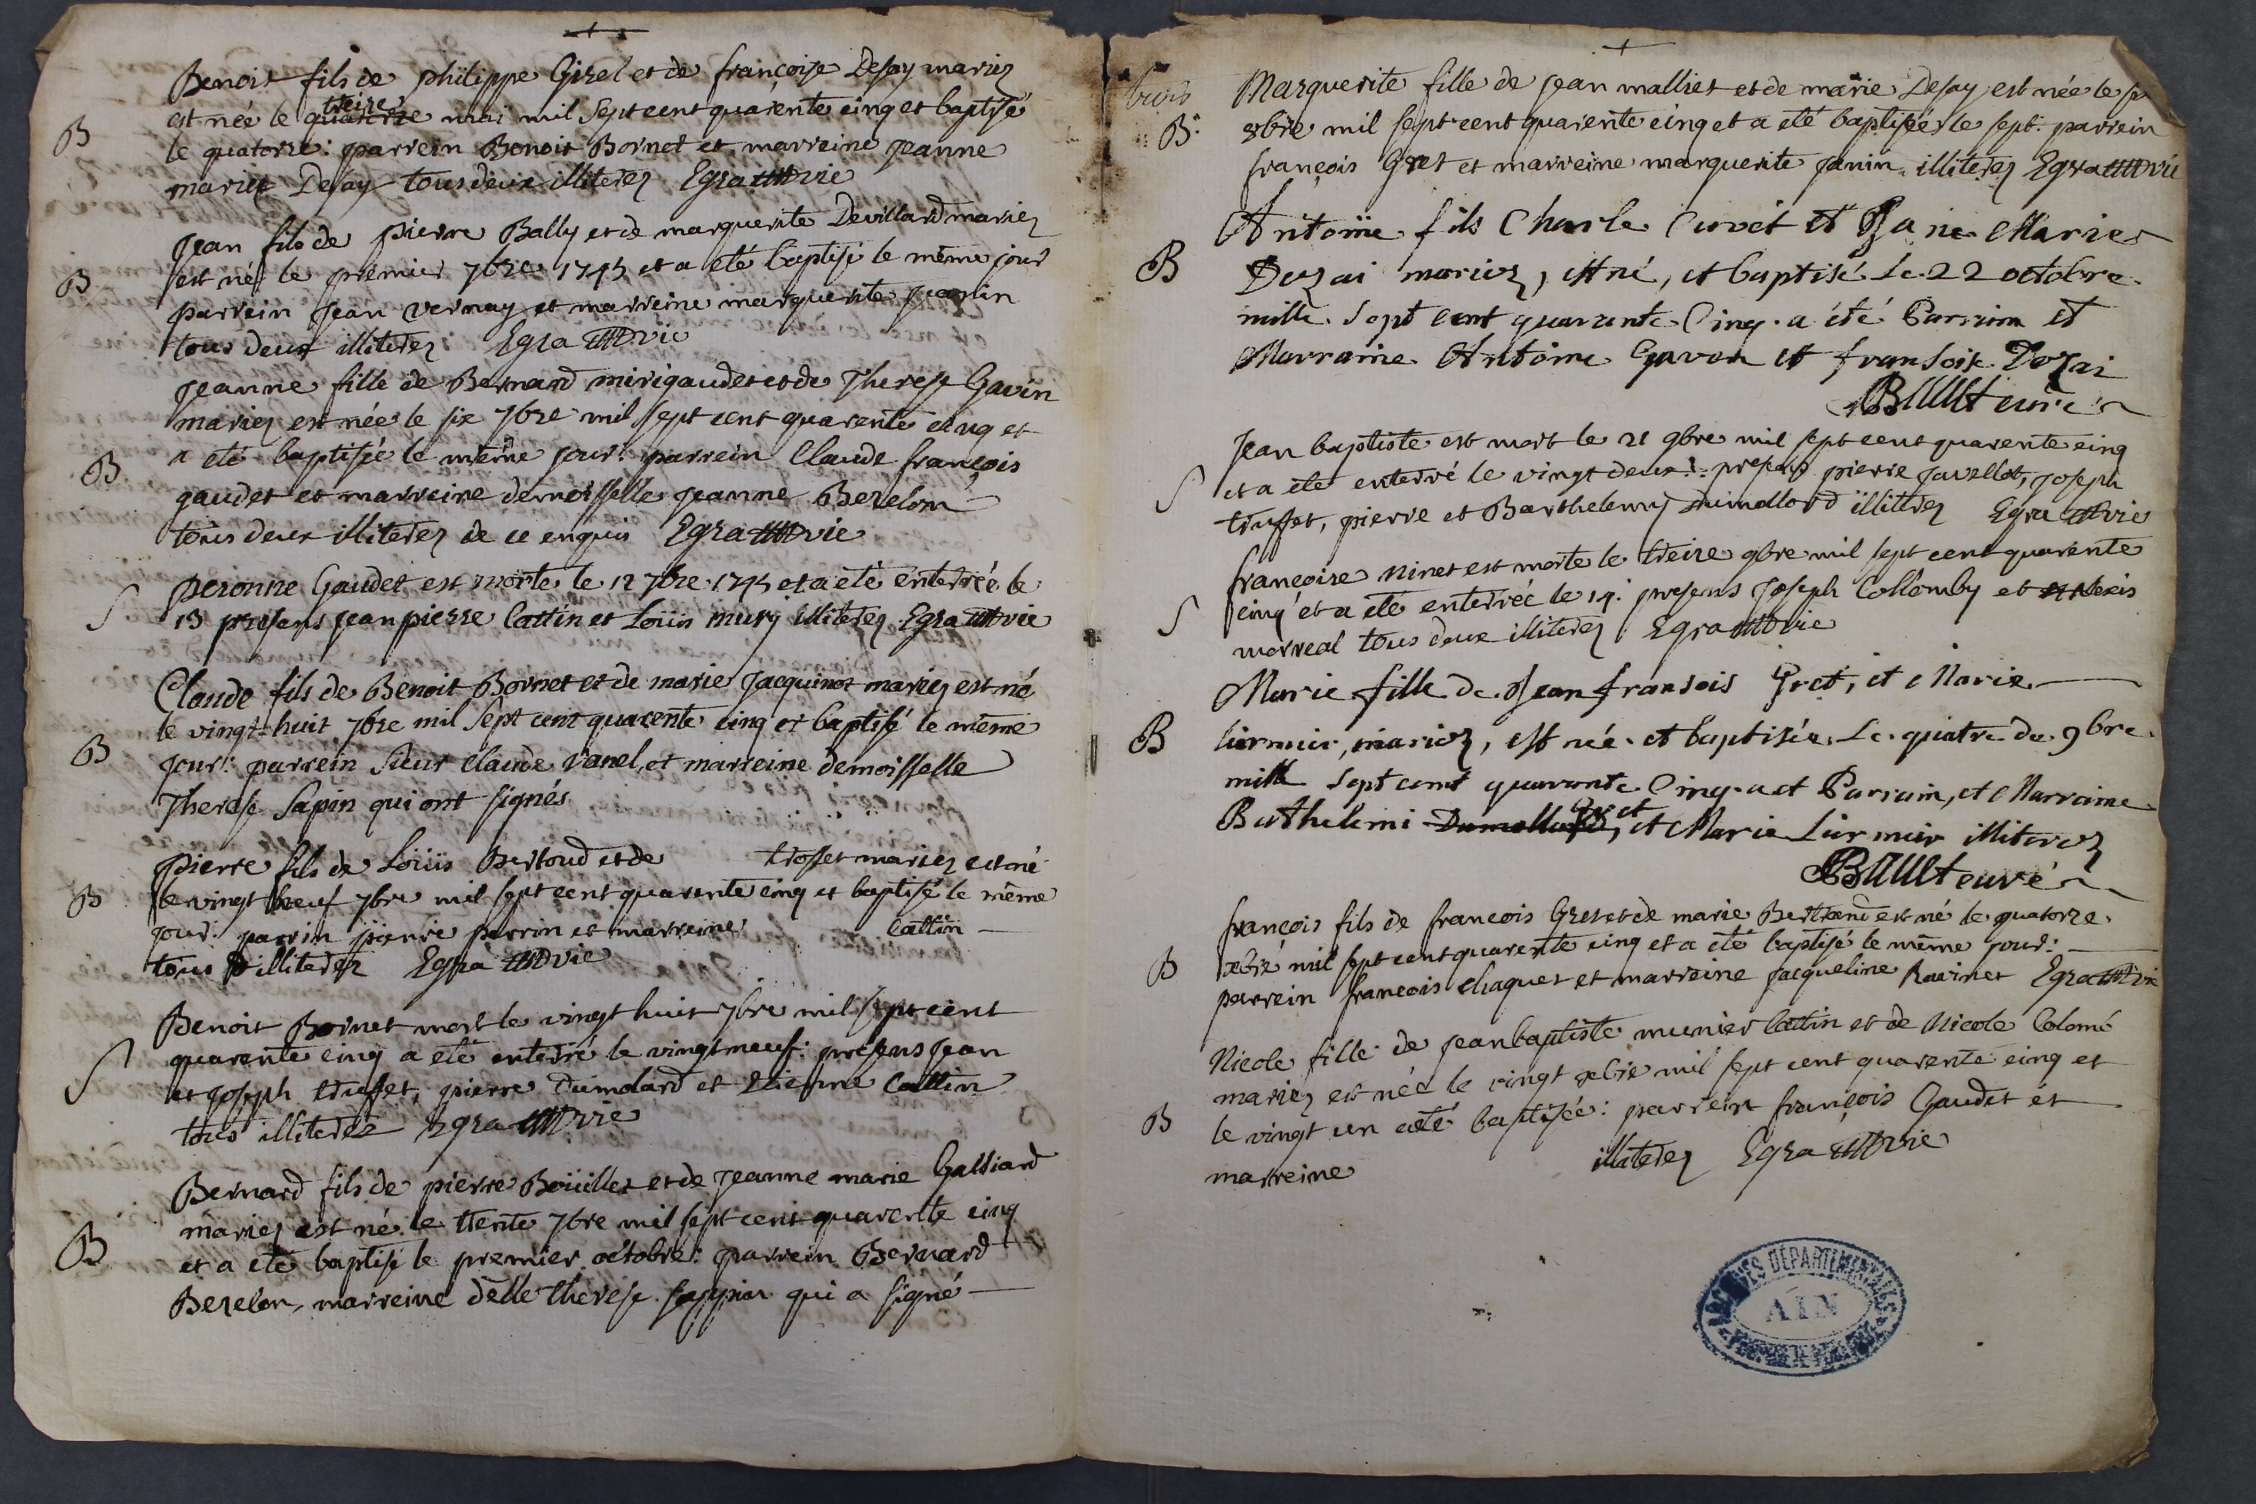 Benoit fils de philippe Girel et de françoise Desay mariez
est née le quatorze treize mai mil sept cent quarente cinq et baptisé
B
le quatorze: parrein Benoit Bornet et marreine Jeanne
mariez Desay tous deux illiterez Egra vic
Jean fils de pierre Bally et de marguerite Devillard mariez
B
est né le premier 7bre 1745 et a été baptisé le même jour
parrein Jean vernay et marreine marguerite Janin
tous deux illiterez Egra vic
Jeanne fille de Bernard mirigaudet et de Therese Gavin
mariez est née le six 7bre mil sept cent quarente cinq et
B
a été baptisée le même jour: parrein Claude françois
gaudet et marreine demoisselle Jeanne Berelon
tous deux illiterez de ce enquis Egra vic
S
peronne Gaudet est morte le 12 7bre 1745 et a été enterrée le
13 presens Jean pierre Cattin et Loüis mury illiterez Egra vic
Claude fils de Benoit Bornet et de marie Jacquinot mariez est né
le vingt-huit 7bre mil sept cent quarente cinq et baptisé le même
B
jour: parrein sieur claude Vanel, et marreine demoisselle
Therese Sapin qui ont signés
pierre fils de Loüis Bertoud et de trosset mariez est né
B
le vingt neuf 7bre mil sept cent quarente cinq et baptisé le même
jour: parrin pierre perrin et marreine Cattin
tous illiterez Egra vic
Benoit Bornet mort le vingt huit 7bre mil sept cent
S
quarente cinq a eté enterré le vingt neuf: presens Jean
et Joseph truffet, pierre Dumolard et Etienne Cattin
tous illiterez Egra vic
Bernard fils de pierre Boüillet et de Jeanne marie Galliard
mariez est né le trente 7bre mil sept cent quarente cinq
B
et a eté baptisé le premier octobre: parrein Bernard
Berelon, marreine delle therese sappin qui a signé
trois
Marguerite fille de Jean malliet et de marie Desay est née le
B.
8bre mil sept cent quarente cinq et a eté baptisée le sept: parrein
françois Gret et marreine marguerite Janin illiterez Egra vic
Antoine fils Charle Curvet et Jane Marie
B
Dezai mariez, est né, et baptisé le 22 octobre
mille sept cent quarante Cinq. a été Parrain et
Marraine Antoine Gavon et fransoise Dezai
Bault curé
Jean baptiste est mort le 21 9bre mil sept cent quarente cinq
S
et a été enterré le vingt deux: presens pierre Javellot, Joseph
truffet, pierre et Barthelemy Dumollord illiterez Egra vic
françoise ninet est morte le treize 9bre mil sept cent quarente
S
cinq et a eté enterrée le 14: presens Joseph Collomby et Alexis
morreal tous deux illiterez Egra vic
Marie fille de Jean fransois Gret, et Marie
B
Lurmier, mariez, est née et baptisée le quatre de 9bre
mille sept cent quarante Cinq. a et Parrain, et Marraine
Barthelemi Dumollard Gret, et Marie Lurmier illiterez
Bault curé
françois fils de francois Gret et de marie Bertrand est né le quatorze
B
xbre mil sept cent quarente cinq et a eté baptisé le même jour:
parrein francois chaquet et marreine Jacqueline Ravinet Egra vic
Nicole fille de Jean baptiste munier Cattin et de Nicole Colomé
mariez est née le vingt xbre mil sept cent quarente cinq et
B
le vingt un a eté baptisée: parrein françois Gaudet et
marreine illiterez Egra vic
ARCHIVES DÉPARTEMENTALES
AIN